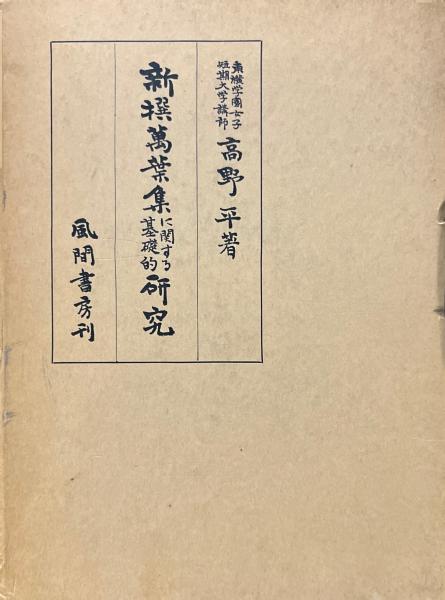 東横学園女子
短期大学講師
高野平著
新撰萬葉集に関する基礎的研究
風間書房刊